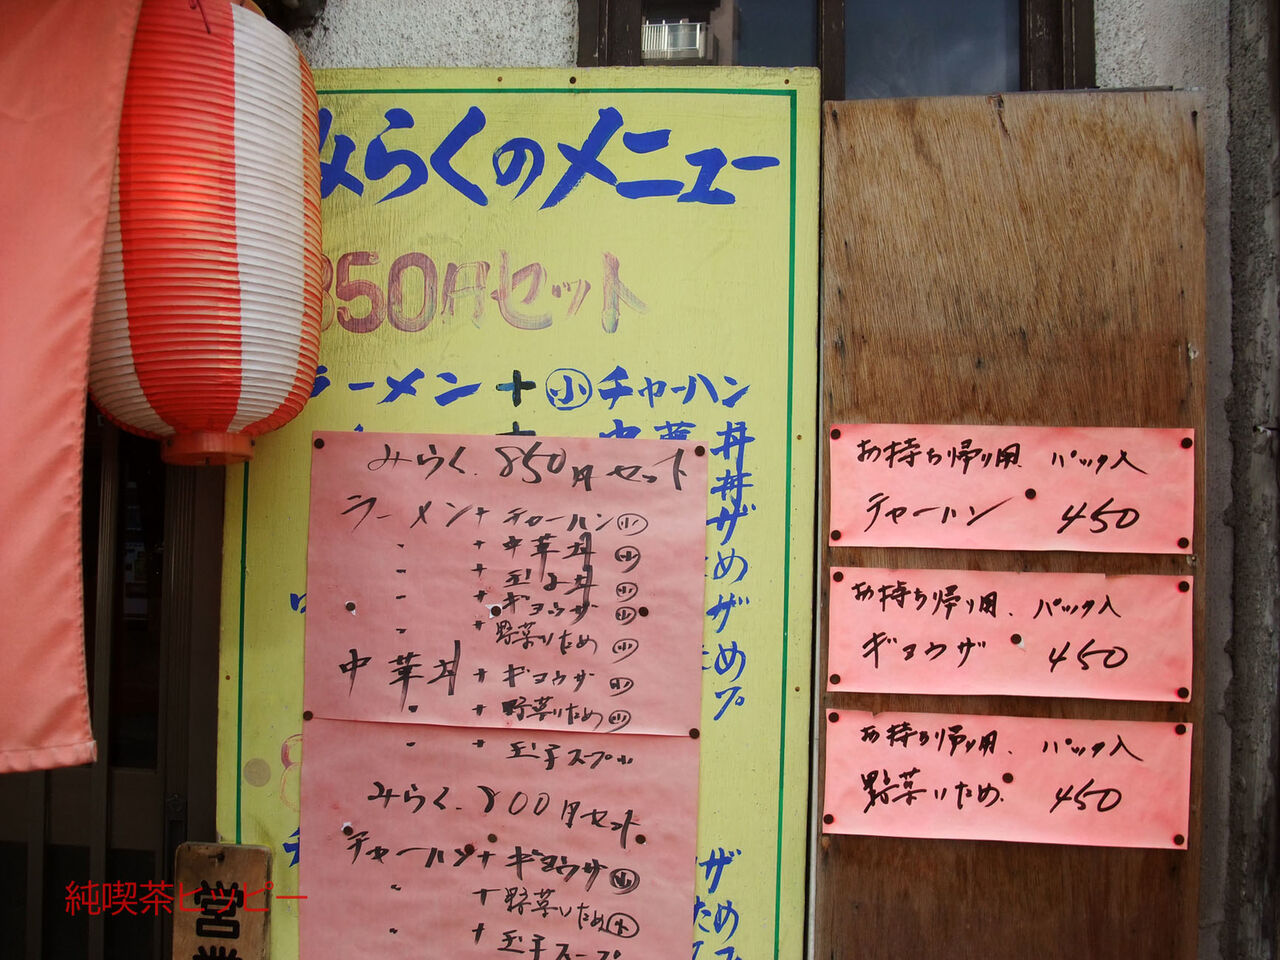 みらくのメニュー
850円セット
ラーメン+小チャーハン
+中華丼
丼
ザ
め
ザ
め
プ
みらく.850円セット
ラーメン+チャーハン小
〃+中華丼小
〃+玉子丼小
〃+ギョウザ小
〃+野菜いため小
中華丼+ギョウザ小
〃+野菜いため小
〃+玉子スープ小
みらく.800円セット
チャーハン+ギョウザ小
〃+野菜いため小
〃+玉子スープ
ザ
ため
お持ち帰り用.パック入
チャーハン 450
お持ち帰り用.パック入
ギョウザ 450
お持ち帰り用.パック入
野菜いため. 450
営業
純喫茶ヒッピー